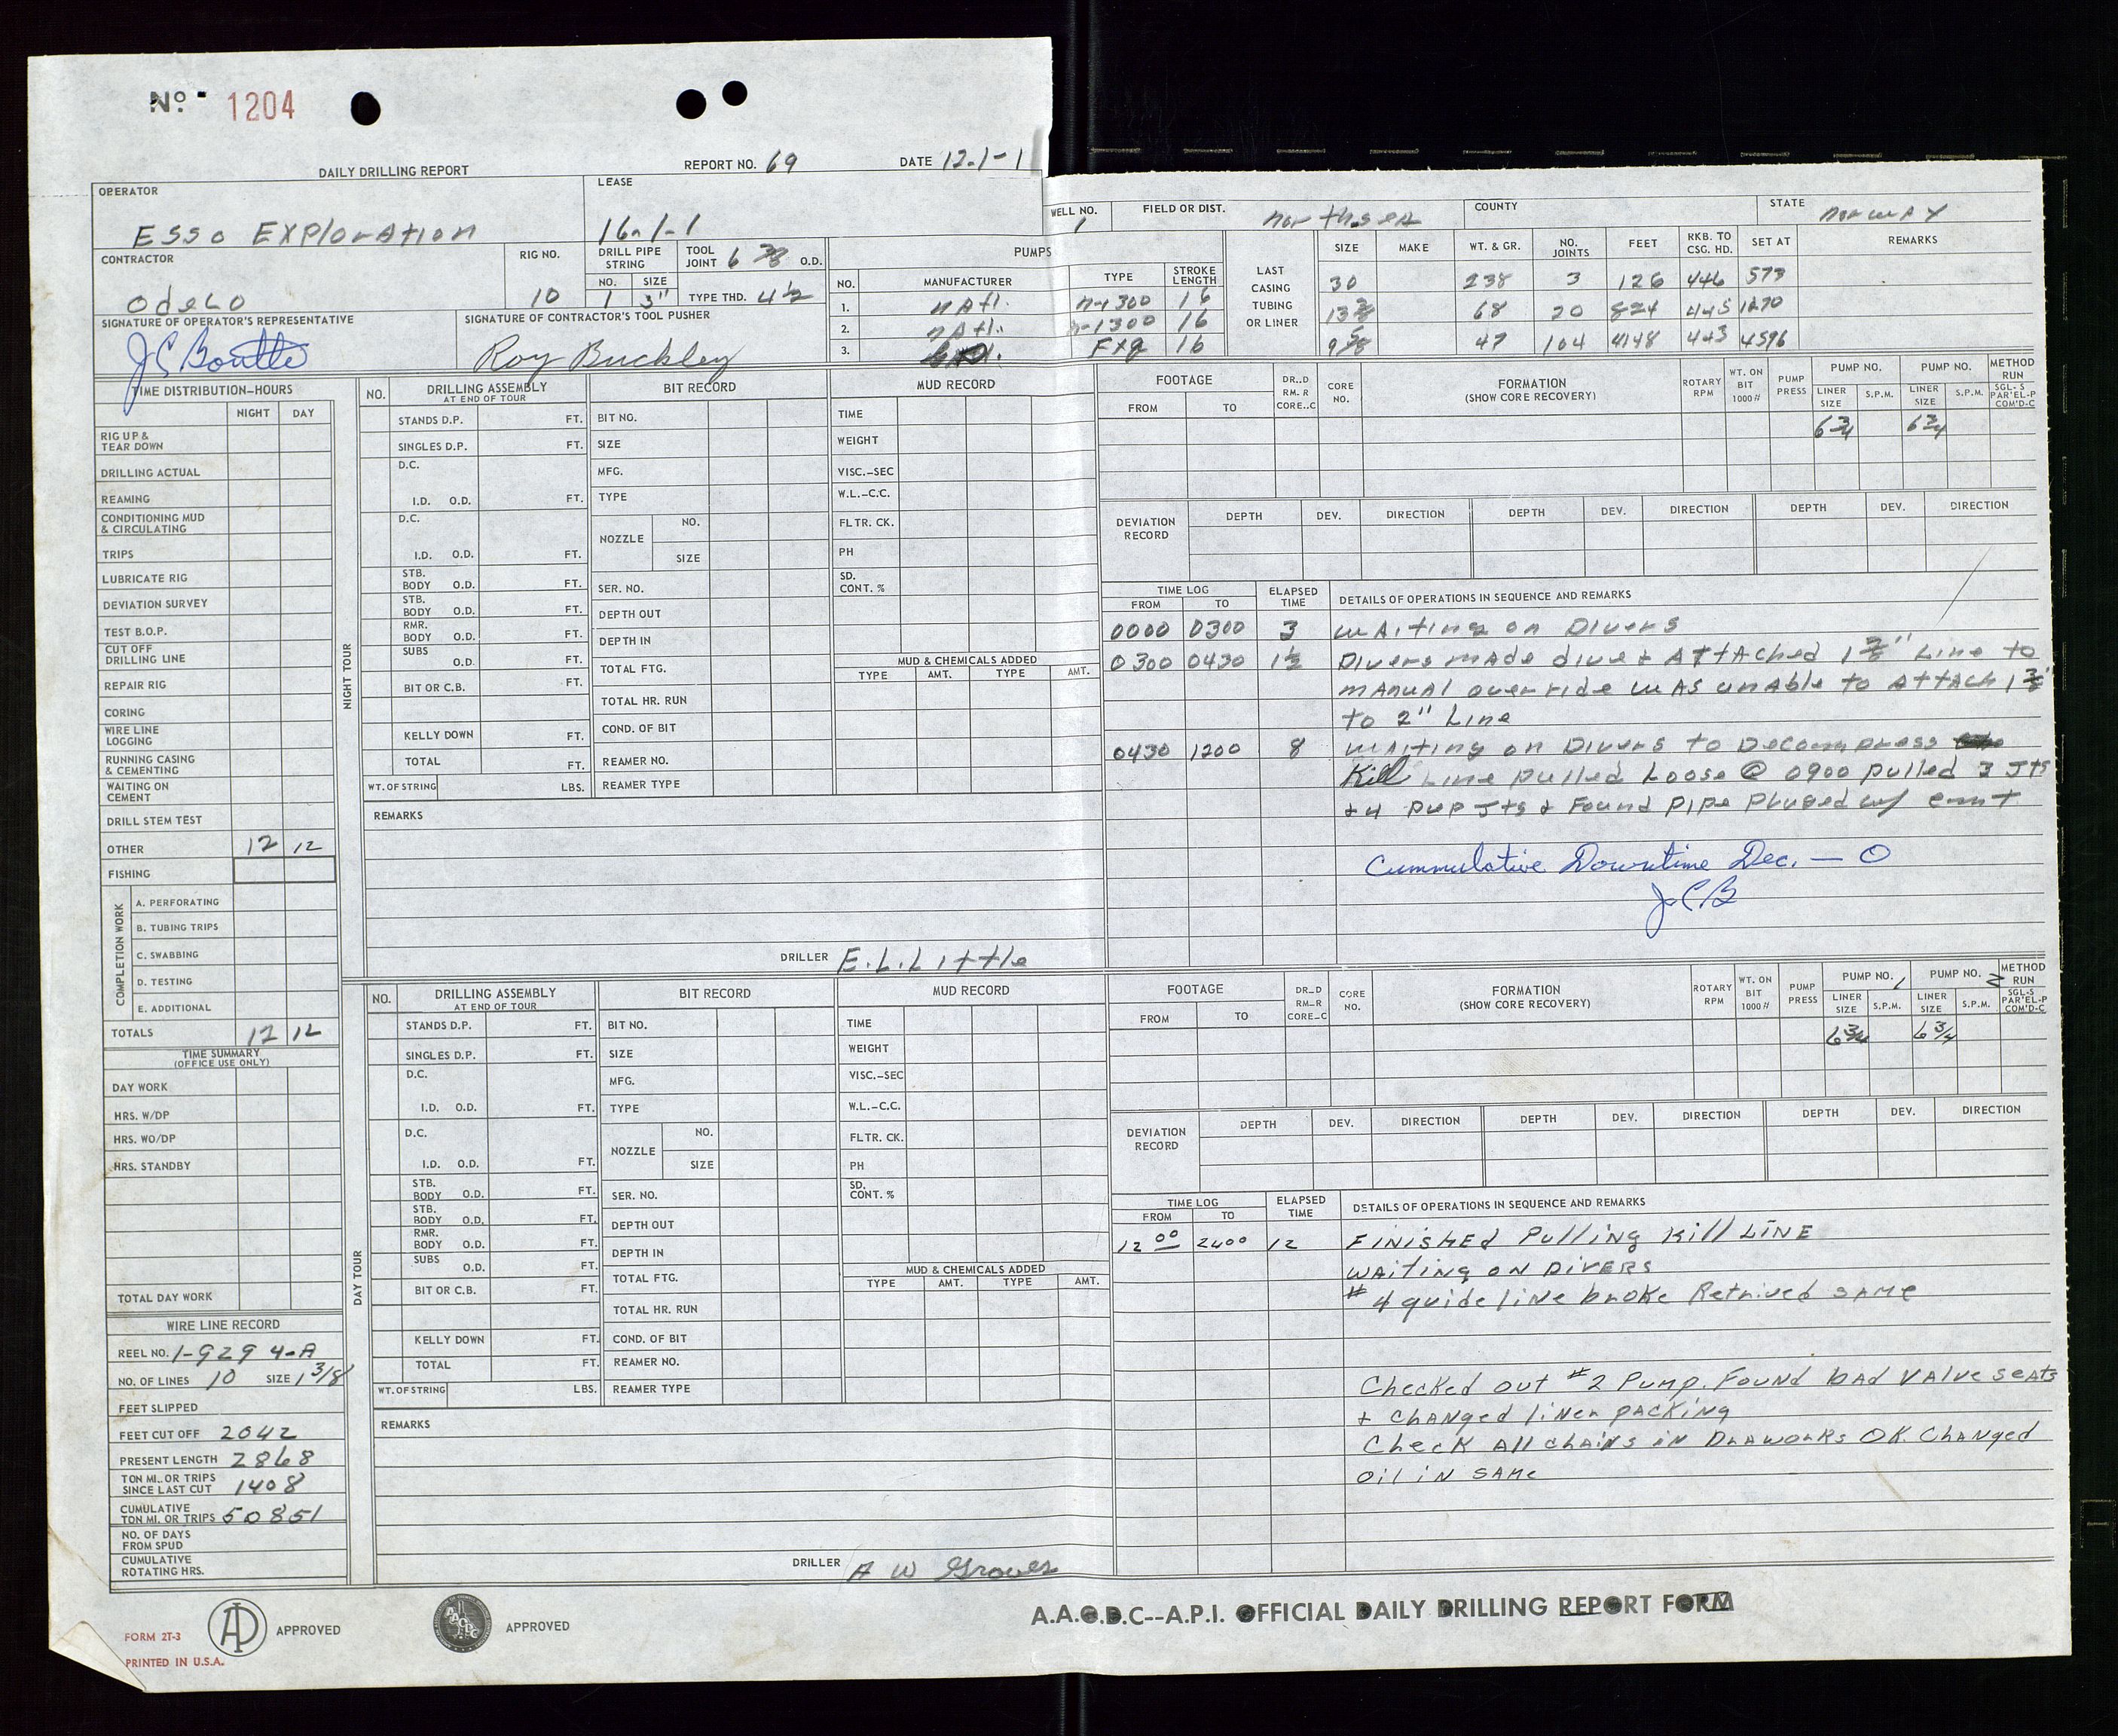 No. 1204
DAILY DRILLING REPORT REPORT NO. 69 DATE 12-1-1
OPERATOR LEASE WELL NO. FIELD OR DIST. COUNTY STATE
Esso Exploration 16-1-1 1 northsea norway
CONTRACTOR RIG NO. DRILL PIPE STRING TOOL JOINT 6 3/8 O.D. PUMPS
NO. SIZE TYPE THD. 4 1/2
Odeco 10 1 5"
SIGNATURE OF OPERATOR'S REPRESENTATIVE SIGNATURE OF CONTRACTOR'S TOOL PUSHER
J C Boutte Roy Buckley
NO. MANUFACTURER TYPE STROKE LENGTH
1. natl. n-1300 16
2. natl. n-1300 16
3. FXQ 16
LAST CASING TUBING OR LINER
SIZE MAKE WT. & GR. NO. JOINTS FEET RKB. TO CSG. HD. SET AT REMARKS
30 238 3 126 446 573
13 3/8 68 20 824 445 1270
9 5/8 47 104 4148 443 4596
TIME DISTRIBUTION-HOURS
NIGHT DAY
RIG UP & TEAR DOWN
DRILLING ACTUAL
REAMING
CONDITIONING MUD & CIRCULATING
TRIPS
LUBRICATE RIG
DEVIATION SURVEY
TEST B.O.P.
CUT OFF DRILLING LINE
REPAIR RIG
CORING
WIRE LINE LOGGING
RUNNING CASING & CEMENTING
WAITING ON CEMENT
DRILL STEM TEST
OTHER 12 12
FISHING
COMPLETION WORK
A. PERFORATING
B. TUBING TRIPS
C. SWABBING
D. TESTING
E. ADDITIONAL
TOTALS 12 12
TIME SUMMARY
(OFFICE USE ONLY)
DAY WORK
HRS. W/DP
HRS. WO/DP
HRS. STANDBY
TOTAL DAY WORK
WIRE LINE RECORD
REEL NO. 1-9294-A
NO. OF LINES 10 SIZE 1 3/8
FEET SLIPPED
FEET CUT OFF 2042
PRESENT LENGTH 2868
TON MI. OR TRIPS SINCE LAST CUT 1408
CUMULATIVE TON MI. OR TRIPS 50851
NO. OF DAYS FROM SPUD
CUMULATIVE ROTATING HRS.
NIGHT TOUR
NO. DRILLING ASSEMBLY AT END OF TOUR
STANDS D.P. FT.
SINGLES D.P. FT.
D.C.
I.D. O.D. FT.
D.C.
I.D. O.D. FT.
STB. BODY O.D. FT.
STB. BODY O.D. FT.
RMR. BODY O.D. FT.
SUBS O.D. FT.
BIT OR C.B. FT.
KELLY DOWN FT.
TOTAL FT.
WT. OF STRING LBS.
REMARKS
BIT RECORD
BIT NO.
SIZE
MFG.
TYPE
NOZZLE NO.
SIZE
SER. NO.
DEPTH OUT
DEPTH IN
TOTAL FTG.
TOTAL HR. RUN
COND. OF BIT
REAMER NO.
REAMER TYPE
MUD RECORD
TIME
WEIGHT
VISC.-SEC
W.L.-C.C.
FLTR. CK.
PH
SD. CONT. %
MUD & CHEMICALS ADDED
TYPE AMT. TYPE AMT.
DRILLER E.L. Little
FOOTAGE DR..D RM. R CORE..C CORE NO. FORMATION (SHOW CORE RECOVERY) ROTARY RPM WT. ON BIT 1000 # PUMP PRESS PUMP NO. PUMP NO. METHOD RUN
FROM TO LINER SIZE S.P.M. LINER SIZE S.P.M. SGL-S PAR'EL-P COM'D-C
6 3/4 6 3/4
DEVIATION RECORD DEPTH DEV. DIRECTION DEPTH DEV. DIRECTION DEPTH DEV. DIRECTION
TIME LOG ELAPSED TIME DETAILS OF OPERATIONS IN SEQUENCE AND REMARKS
FROM TO
0000 0300 3 waiting on Divers
0300 0430 1 1/2 Divers made dive & Attached 1 3/8" Line to
manual over ride was unable to Attach 1 3/8"
to 2" Line
0430 1200 8 waiting on Divers to Decompress
Kill Line pulled Loose @ 0900 pulled 3 Jts
& 4 pup Jts & Found pipe pluged w/ cmt
Cummulative Downtime Dec. — 0
JCB
DAY TOUR
NO. DRILLING ASSEMBLY AT END OF TOUR
STANDS D.P. FT.
SINGLES D.P. FT.
D.C.
I.D. O.D. FT.
D.C.
I.D. O.D. FT.
STB. BODY O.D. FT.
STB. BODY O.D. FT.
RMR. BODY O.D. FT.
SUBS O.D. FT.
BIT OR C.B. FT.
KELLY DOWN FT.
TOTAL FT.
WT. OF STRING LBS.
REMARKS
BIT RECORD
BIT NO.
SIZE
MFG.
TYPE
NOZZLE NO.
SIZE
SER. NO.
DEPTH OUT
DEPTH IN
TOTAL FTG.
TOTAL HR. RUN
COND. OF BIT
REAMER NO.
REAMER TYPE
MUD RECORD
TIME
WEIGHT
VISC.-SEC
W.L.-C.C.
FLTR. CK.
PH
SD. CONT. %
MUD & CHEMICALS ADDED
TYPE AMT. TYPE AMT.
DRILLER A W Groves
FOOTAGE DR..D RM-R CORE-C CORE NO. FORMATION (SHOW CORE RECOVERY) ROTARY RPM WT. ON BIT 1000 # PUMP PRESS PUMP NO. 1 PUMP NO. 2 METHOD RUN
FROM TO LINER SIZE S.P.M. LINER SIZE S.P.M. SGL-S PAR'EL-P COM'D-C
6 3/4 6 3/4
DEVIATION RECORD DEPTH DEV. DIRECTION DEPTH DEV. DIRECTION DEPTH DEV. DIRECTION
TIME LOG ELAPSED TIME DETAILS OF OPERATIONS IN SEQUENCE AND REMARKS
FROM TO
12 00 2400 12 Finished Pulling Kill Line
Waiting on Divers
# 4 guide line broke Retrived same
Checked out #2 Pump. Found bad valve seats
& changed liner packing
Check all chains in Draworks OK. Changed
oil in same
FORM 2T-3
PRINTED IN U.S.A.
APPROVED
AAODC
APPROVED
A.A.O.D.C--A.P.I. OFFICIAL DAILY DRILLING REPORT FORM